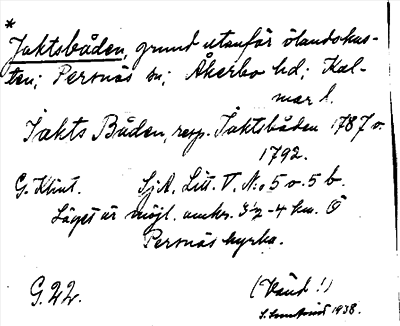 *
Jaktsbåden, grund utanför ölandskus-
ten; Persnäs sn; Åkerbo hd; Kal-
mar l.
Jakts Båden, resp. Jaktsbåden 1787 o.
1792.
G. Klint. SjK. Litt. V. N:o 5 o. 5 b.
Läget är möjl. omkr. 3½-4 km. Ö
Persnäs kyrka.
G. 22. (Vänd!)
1938.